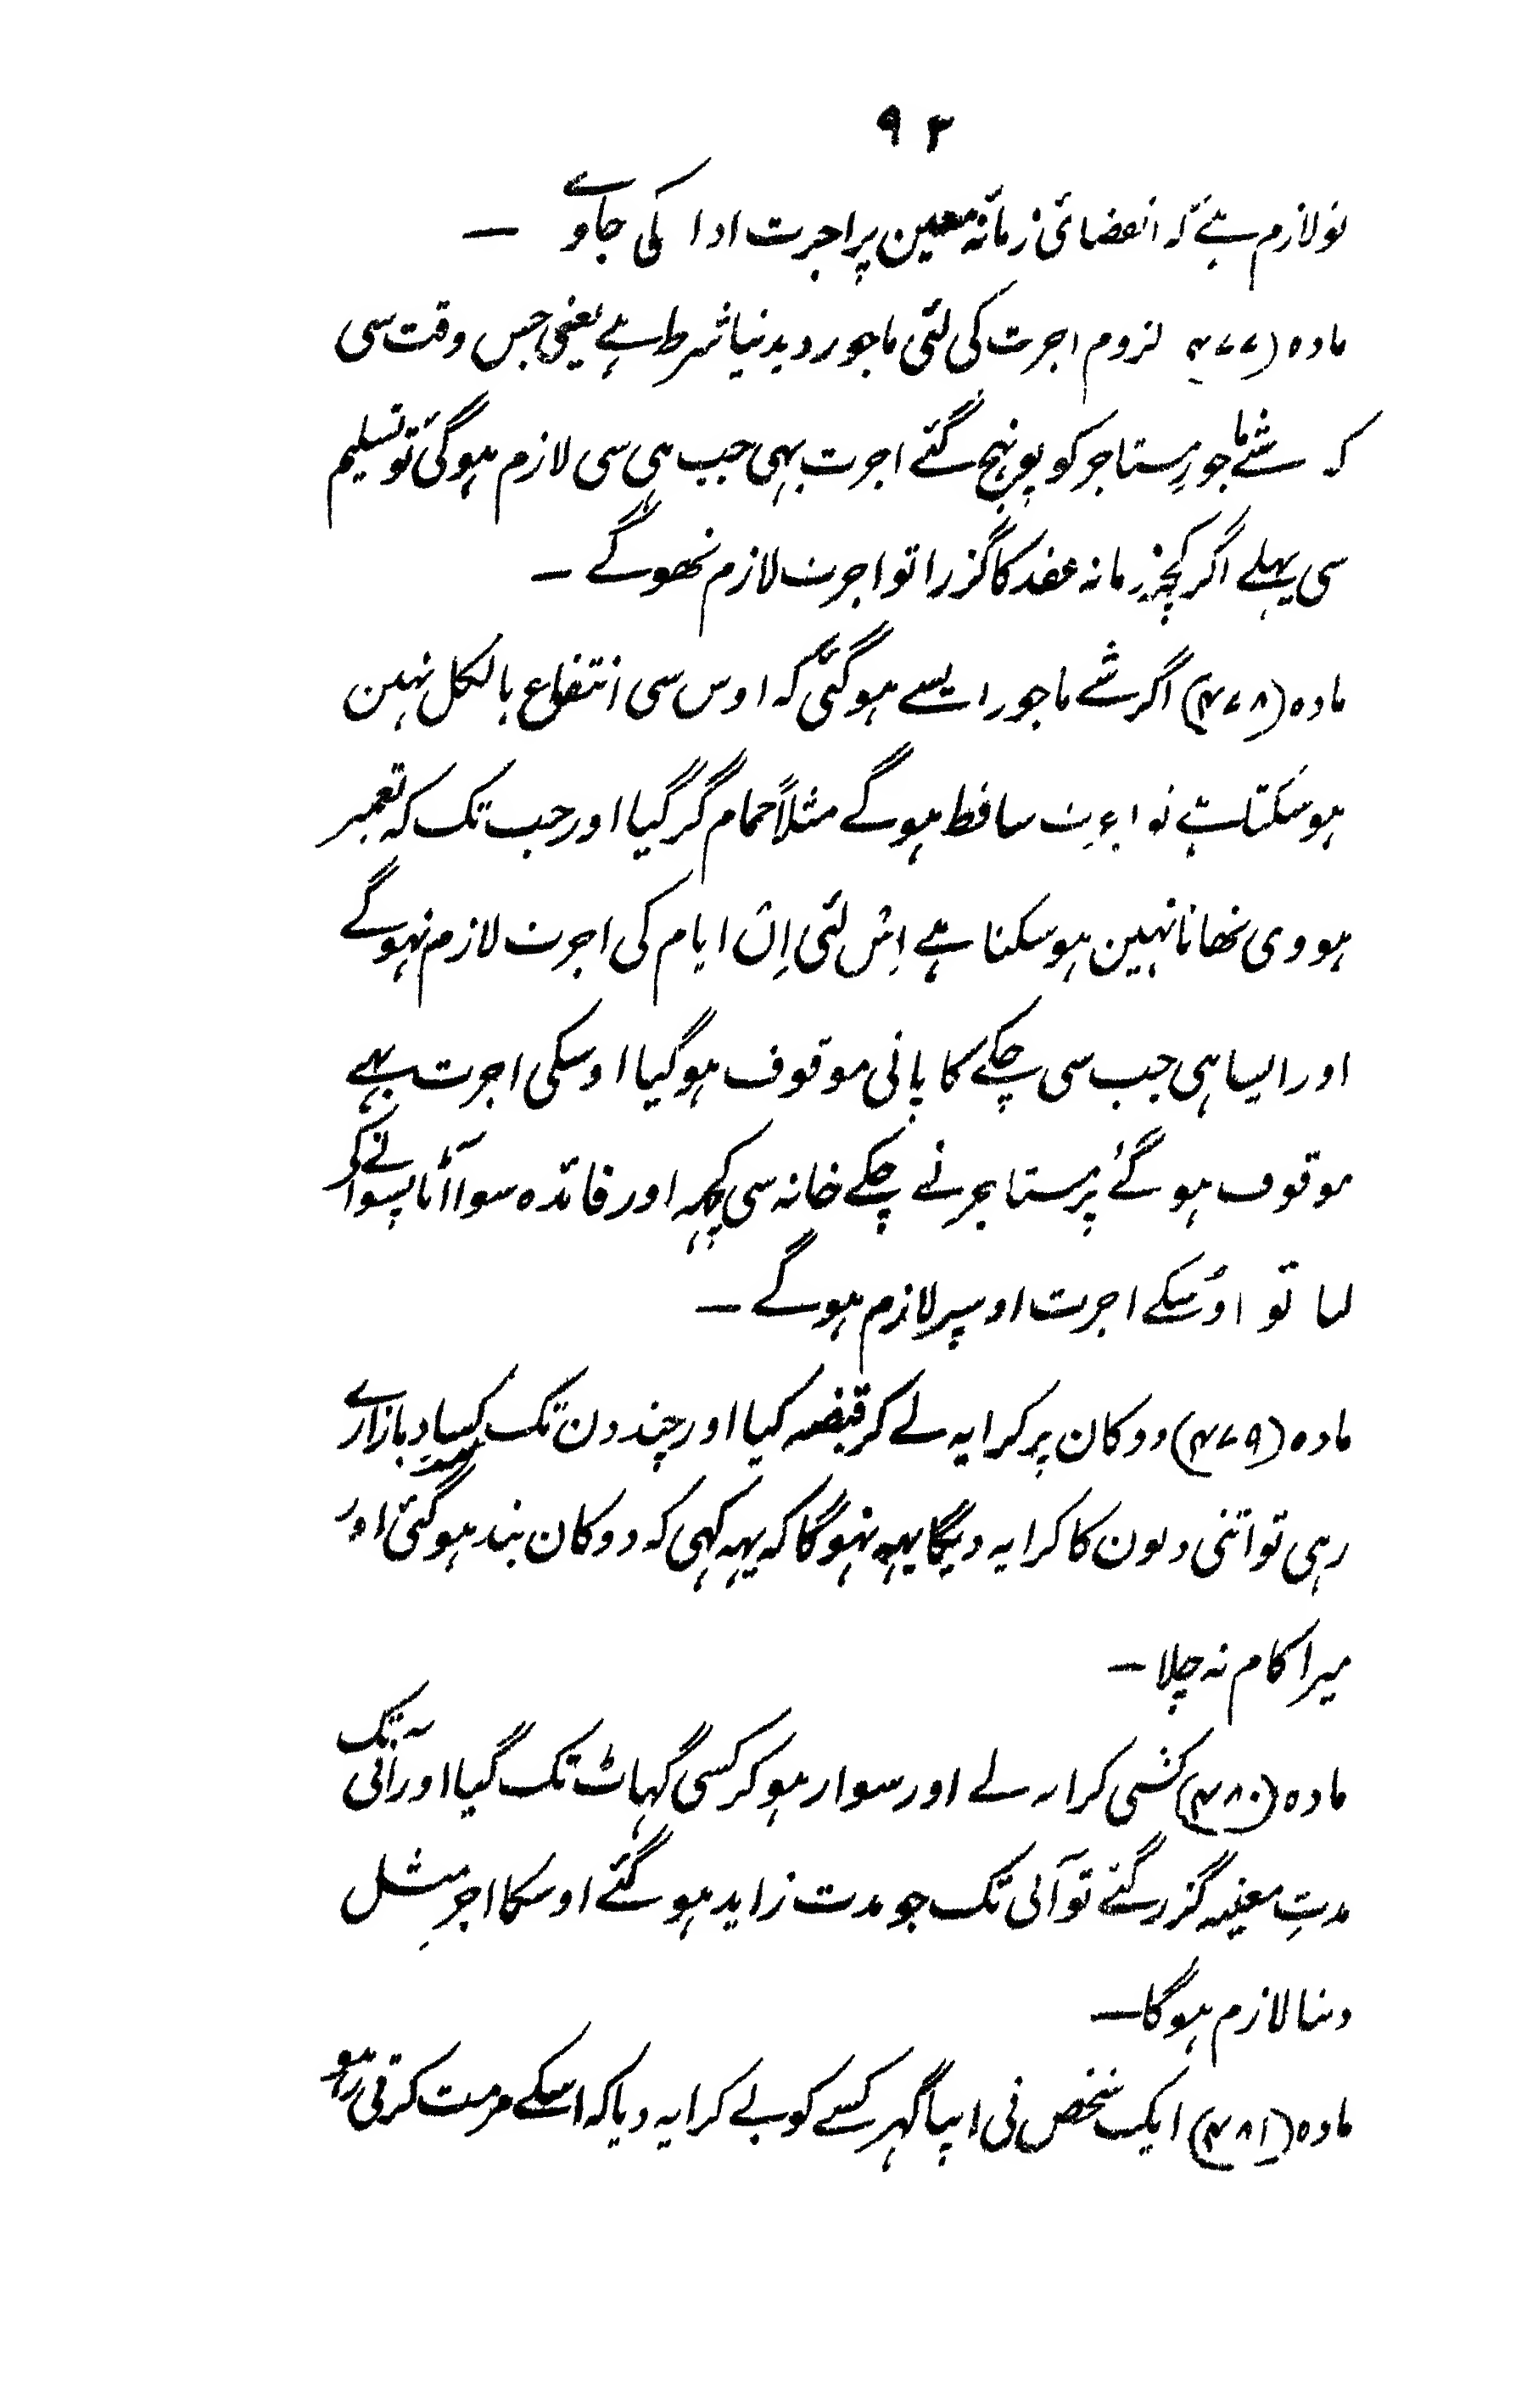 ۹۳
تو لازم ہے کہ انقضائی زمانہ معین پر اجرت ادا کی جاوے —
مادہ (۴۷۷) لزوم اجرت کی لئی ماجور دیدنیا شرط ہے یعنی جس وقت سی
کہ شئے ماجور مستاجر کو پہونچ گئے اجرت بہی جب ہی سی لازم ہوگی تو تسلیم
سی پہلے اگر کچہ زمانہ عقد کا گزرا تو اجرت لازم نھوگے —
مادہ (۴۷۸) اگر شے ماجور ایسے ہوگئی کہ اوس سی انتفاع بالکل نہین
ہو سکتا ہے تو اجرت ساقط ہوگے مثلاً حمام گر گیا اور جب تک کہ تعمیر
ہووی نھانا نہین ہو سکتا ہے اِس لئی اِن ایام کی اجرت لازم نہوگے
اور ایسا ہی جب سی چکے کا پانی موقوف ہو گیا اوسکی اجرت بہے
موقوف ہوگے پر مستاجر نے چکے خانہ سی کچہہ اور فائدہ سوا آٹا پسوانے کی
لیا تو اوُسکے اجرت اوسپر لازم ہوگے —
مادہ (۴۷۹) دوکان پر کرایہ لے کر قبضہ کیا اور چند دن تک کسادِ بازارے
رہی تو اتنی دلون کا کرایہ دیگا یہہ نہوگا کہ یہہ کہی کہ دوکان بند ہوگئی اور
میرا کام نہ چلا —
مادہ (۴۸۰) کشتی کرایہ لے اور سوار ہو کر کسی گہاٹ تک گیا اور آنی تک
مدتِ معینہ گزر گئے تو آنی تک جو مدت زاید ہو گئے اوسکا اجرِ مثل
دینا لازم ہوگا —
مادہ (۴۸۱) ایک شخص نی اپنا گہر کسے کو بے کرایہ دیا کہ اسکے مرمت کرتی رہو